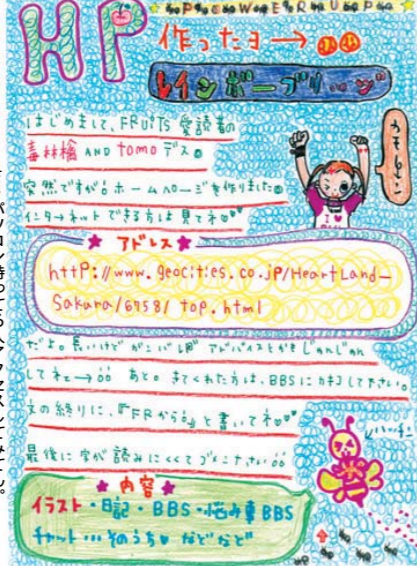 HP
POWER UP
作ったヨー→
レインボーブリッヂ
はじめまして、FRUiTS 愛読者の
毒林檎 AND tomo デス
突然ですが ホームページを作りました
インターネットできる方は 見てネ
アドレス
http://www.geocities.co.jp/HeartLand-
Sakura/6758/top.html
だよ。長いけど がんばレ アドバイスとかもじゃんじゃん
してネェ→ あと。きてくれた方は、BBSに カキコして下さい。
文の終りに、『FRから』と書いてネ
最後に 字が 読みにくくて ゴメンナサイ
ハーチ
内容
イラスト・日記・BBS・悩み事BBS
チャット…そのうち などなど